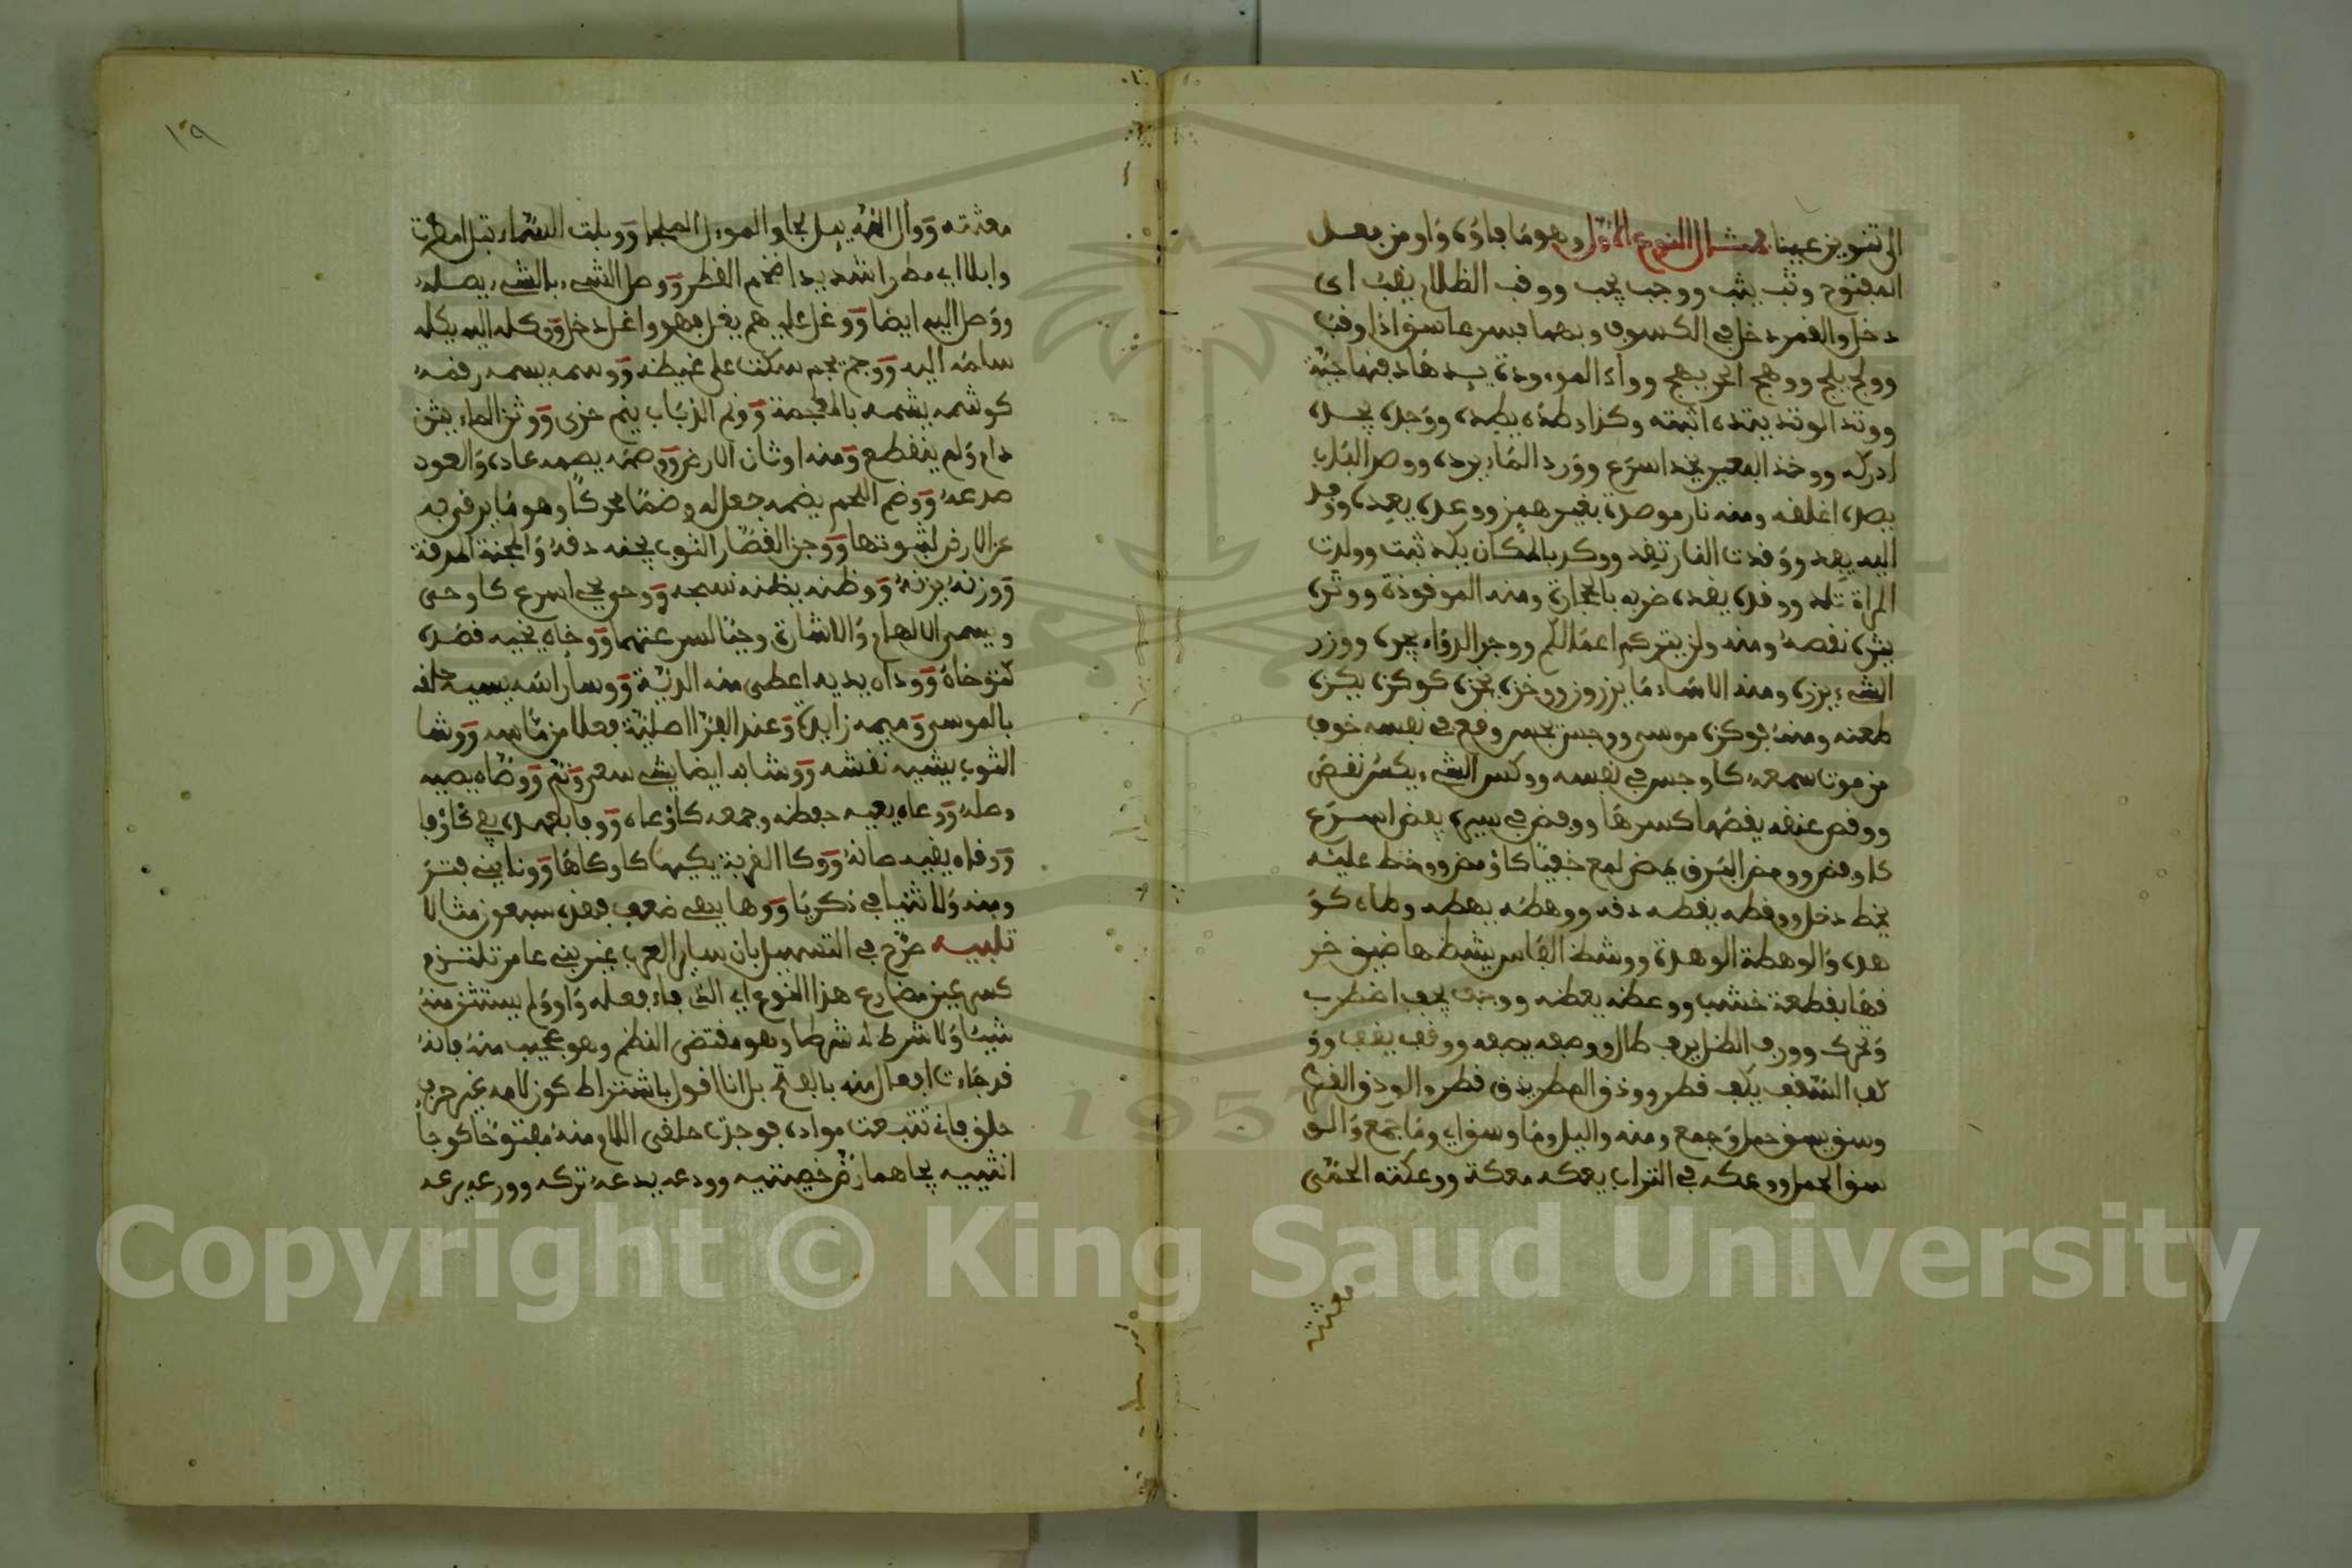 الى تنوين عينا فمثال النوع الاول وهو ما فاؤه واو من فعل
المفتوح وثب يثب ووجب يجب ووقب الظلام يقب اى
دخل والقمر دخل في الكسوف وبهما فسر غاسق اذا وقب
وولج يلج ووهج الحر يهج ووأد الموءودة يئدها دفنها حية
ووتد الوتد يتده اثبته وكذا وطده يطده ووجده يجده
ادركه ووخد البعير يخد اسرع وورد الماء يرده ووصد الباب
يصده اغلقه ومنه نار موصدة بغير همز ووعده يعده ووفد
اليه يفد ووقدت النار تقد ووكد بالمكان يكد ثبت وولدت
المراة تلد ووقذه يقذه ضربه بالحجارة ومنه الموقوذة ووتره
يتره نقصه ومنه ولن يتركم اعمالكم ووجر الدواء يجره ووزر
الشيء يزره ومنه الاساء ما يزرون ووخزه يخزه كوكزه يكزه
طعنه ومنه فوكزه موسى ووجس يجس وقع في نفسه خوف
من صوت سمعه كاوجس في نفسه ووكس الشيء يكسه نقص
ووقص عنقه يقصها كسرها ووفض في سيره يفض اسرع
كاوفض وومض البرق يمض لمع خفيا كاومض ووخط عليه
يخط دخل ووقطه يقطه دفه ووهطه يهطه وطاه كو
هده والوهطة الوهدة ووشظ الفاس يشظها ضيق خر
قها بقطعة خشب ووعظه يعظه ووجف يجف اضطرب
وتحرك وورف الظل يرف طال ووصفه يصفه ووقف يقف وو
كف السقف يكف قطر وودق المطر يدق قطر والودق القطر
وسق يسق حمل وجمع ومنه واليل وما وسق اي وما جمع والو
سق الحمل ووعكه في التراب يعكه معكه ووعكته الحمى
معثته
١٠٩
معثته ووأل اليه يئل لجا والموئل الملجا ووبلت السماء تبل امطرت
وابلا اي مطرا شديدا ضخم القطر ووصل الشيء بالشيء يصله
ووصل اليه ايضا ووغل عليهم يغل فهو واغل دخل ووكله اليه يكله
سلمه اليه ووجم يجم سكت على غيظه ووسمه يسمه رقمه
كوشمه يشمه بالمعجمة وونم الذباب ينم خرى ووتن الماء يتن
دام ولم ينقطع ومنه اوثان الارض ووصمه يصمه عابه والعود
صدعه ووضم اللحم يضمه جعل له وضما محركا وهو ما يرقى به
عن الارض ووجن القصار الثوب يجنه دقه والمجنة المدقة
ووزنه يزنه ووظنه يظنه نسجه ووحى يحي اسرع كاوحى
ويسمى الالهام والاشارة وحيا لسرعتهما ووخاه يخيه قصده
كتوخاه ووداه يديه اعطى منه الدية ووسا راسه يسيه حلقه
بالموسى وميمه زايدة وعند الفراء اصلية فعلا من ماسه ووشا
الثوب يشيه نقشه ووشا به ايضا يشي سعى ونم ووصاه يصيه
وصله ووعاه يعيه حفظه وجمعه كاوعاه ووفا بالعهد يفي كاوفا
ووقاه يقيه صانه ووكا القربة يكيها كاوكاها وونا يني فتر
ومنه ولا تنيا في ذكري ووها يهي ضعف فهذه سبعون مثالا
تنبيه صرح في التسهيل بان سائر العرب غير بني عامر تلتزم
كسر عين مضارع هذا النوع اي الذي فاء فعله واو ولم يستثن منه
شيئا ولا شرط له شرطا وهو مقتضى النظم وهو عجيب منه فانه
قد جاءت افعال منه بالفتح بل انا اقول باشتراط كون لامه غير حرف
حلق فاني تتبعت مواده فوجدت حلقى اللام منه مفتوحا كوجا
انثييه يجاهما رض خصيتيه وودعه يدعه تركه وورعه يرعه
Copyright © King Saud University
1957